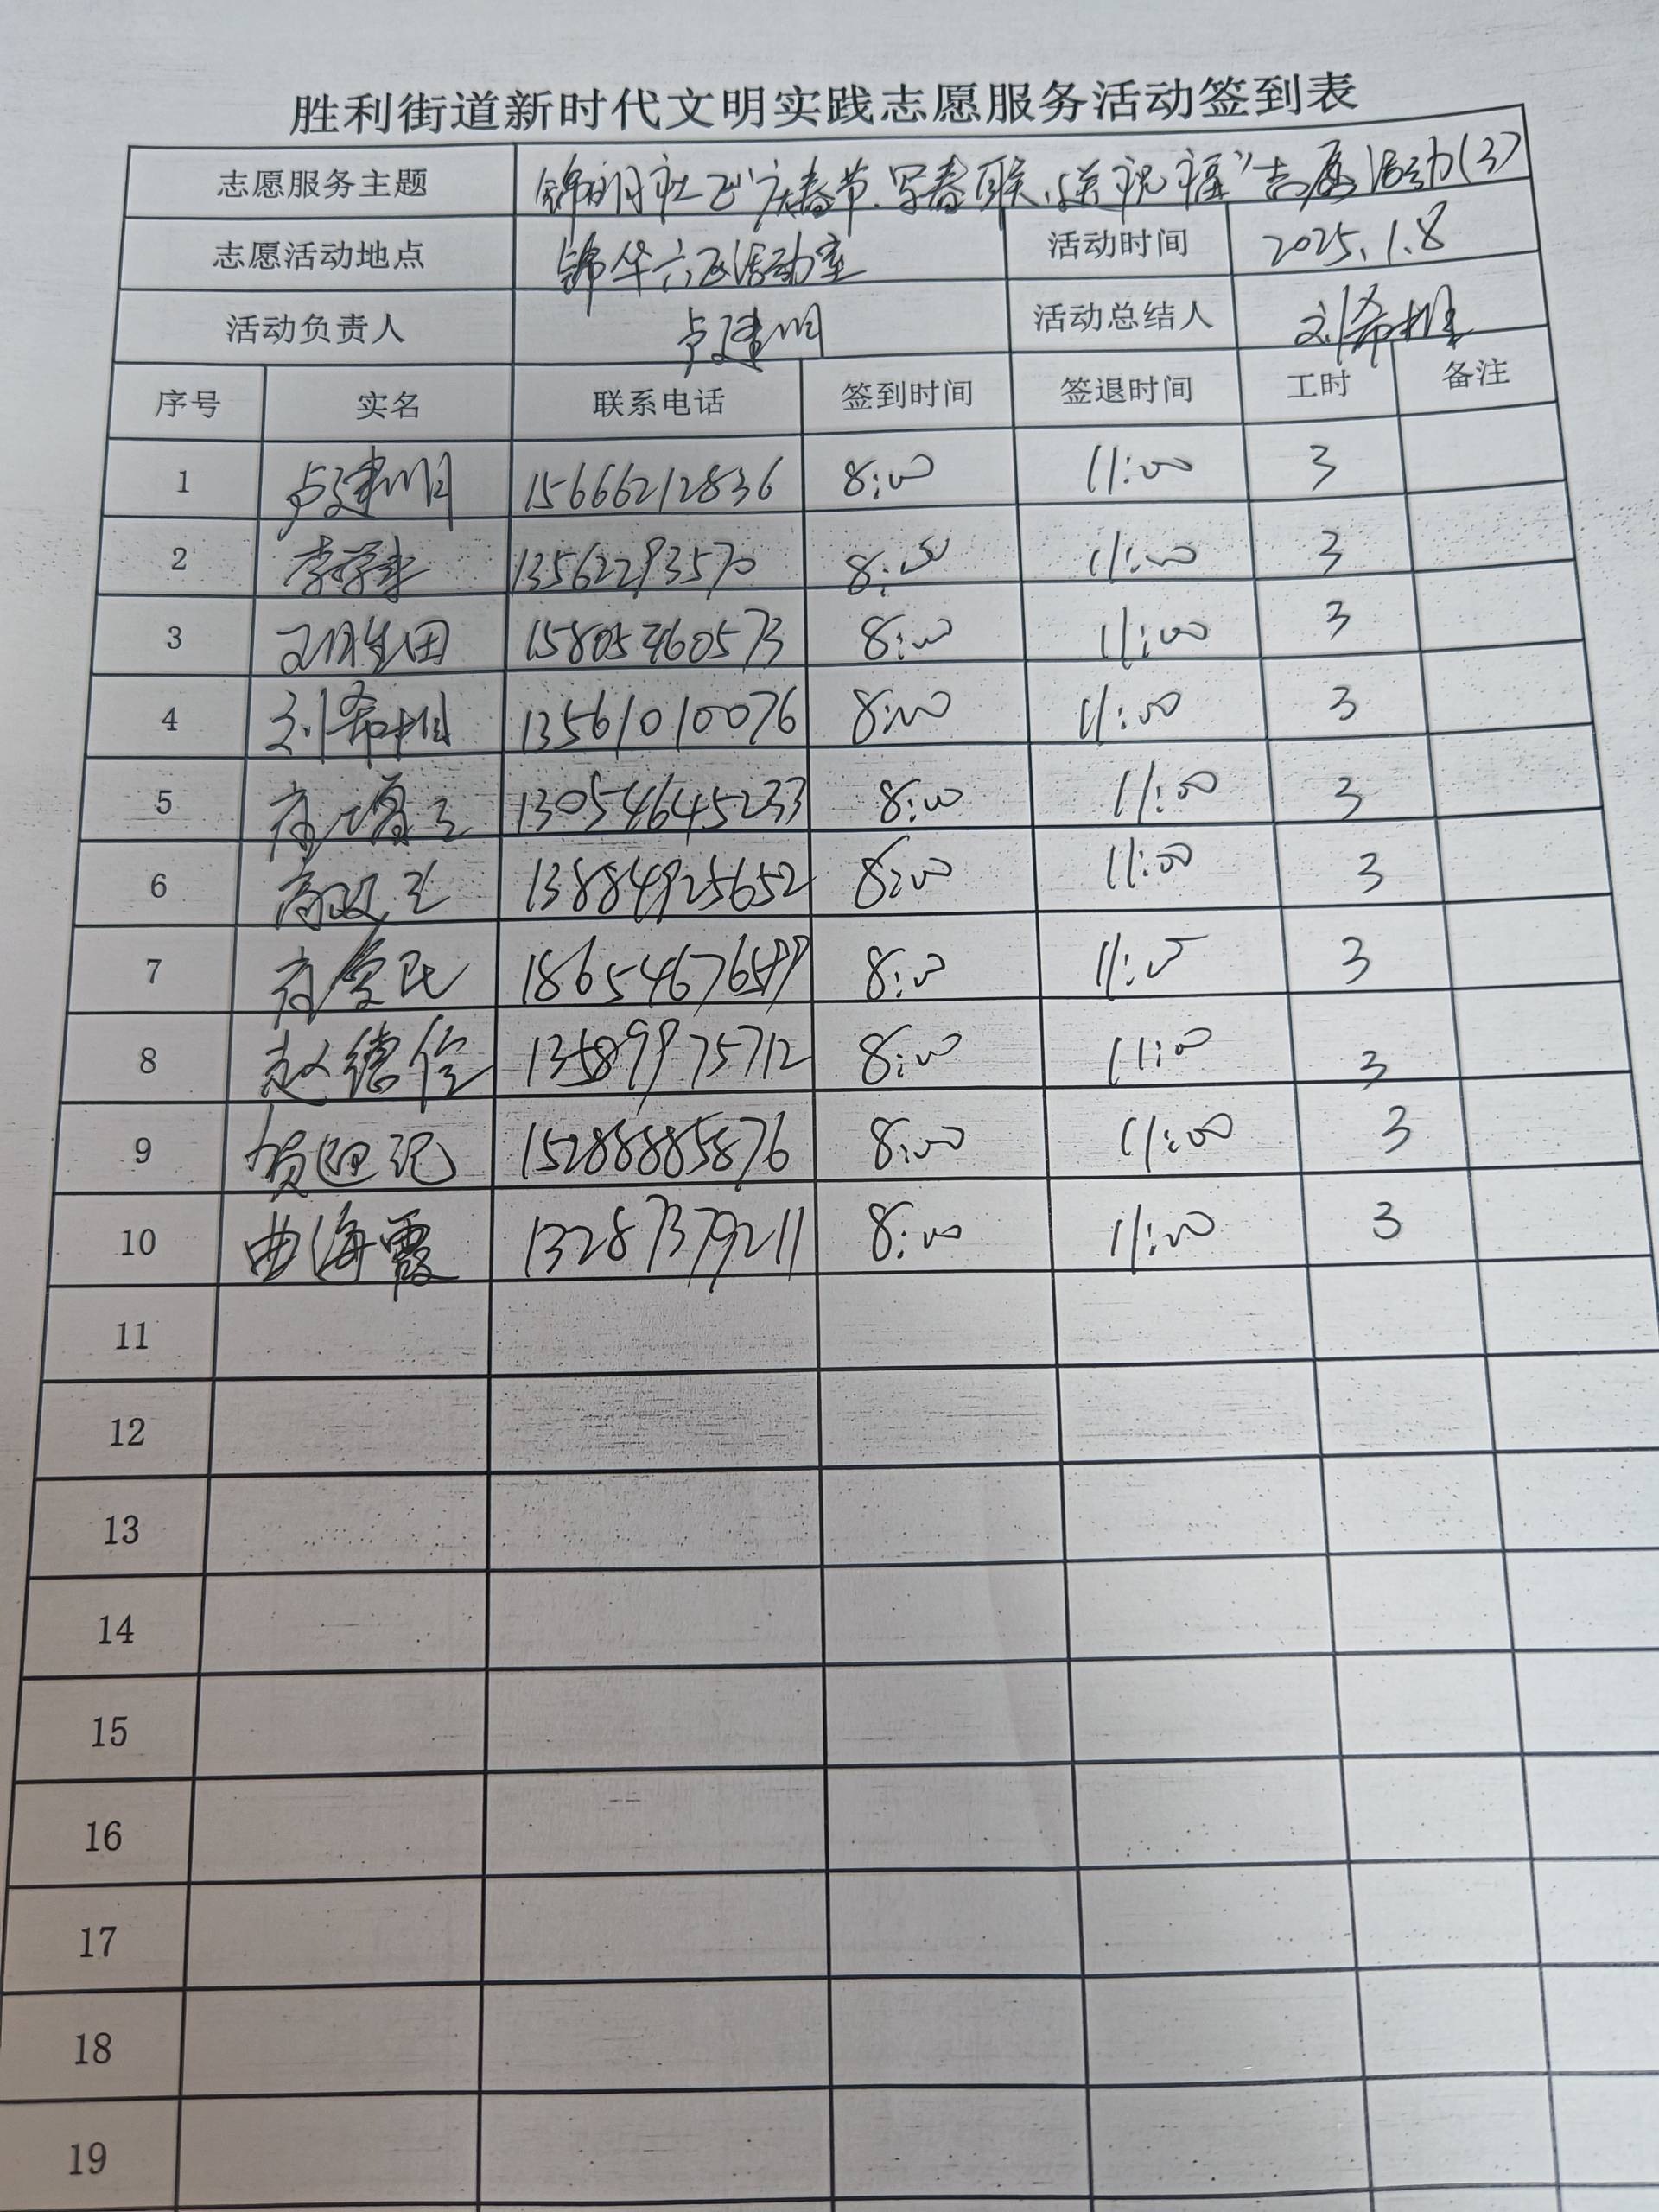 胜利街道新时代文明实践志愿服务活动签到表
志愿服务主题 锦明社区"庆春节、写春联、送祝福"志愿活动(3)
志愿活动地点 锦华六区活动室 活动时间 2025.1.8
活动负责人 卢建明 活动总结人 刘希桓
序号 实名 联系电话 签到时间 签退时间 工时 备注
1 卢建明 15666212836 8:00 11:00 3
2 13562293570 8:00 11:00 3
3 15805460573 8:00 11:00 3
4 刘希桓 13561010076 8:00 11:00 3
5 13054645233 8:00 11:00 3
6 13884925652 8:00 11:00 3
7 8:00 11:00 3
8 赵德俭 13589975712 8:00 11:00 3
9 15288885876 8:00 11:00 3
10 曲海霞 13287379211 8:00 11:00 3
11
12
13
14
15
16
17
18
19